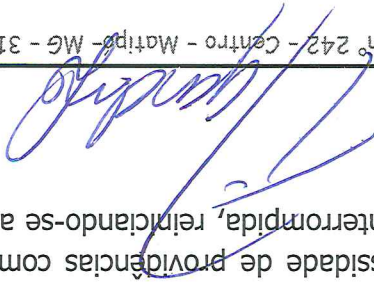 ssidade de providências como
nterrompida, reiniciando-se a
n° 242 - Centro - Matipó- MG - 31